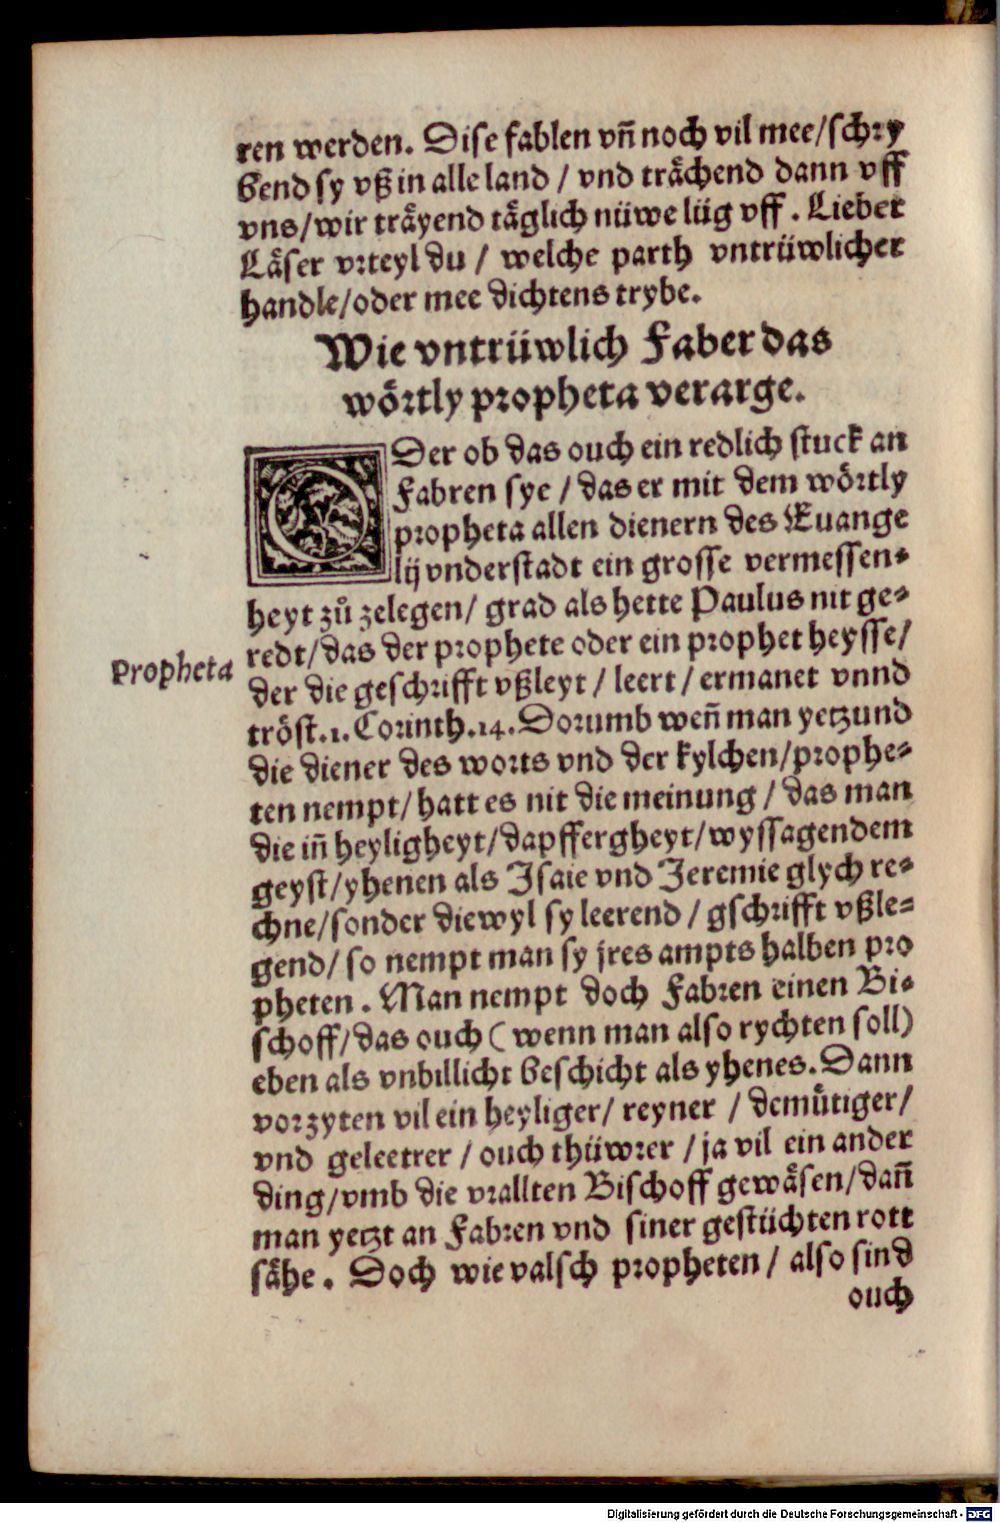 ren werden. Dise fablen vn̄ noch vil mee/schry
bend sy vß in alle land / vnd trächend dann vff
vns/wir träyend täglich nüwe lüg vff. Lieber
Läser vrteyl du / welche parth vntrüwlicher
handle/oder mee dichtens trybe.
Wie vntrüwlich Faber das
wörtly propheta verarge.
ODer ob das ouch ein redlich stuck an
Fabren sye / das er mit dem wörtly
propheta allen dienern des Euange
lij vnderstadt ein grosse vermessen-
heyt zů zelegen/ grad als hette Paulus nit ge-
redt/das der prophete oder ein prophet heysse/
Propheta
der die geschrifft vßleyt / leert / ermanet vnnd
tröst.1.Corinth.14.Dorumb wen̄ man yetzund
die diener des worts vnd der kylchen/prophe-
ten nempt/hatt es nit die meinung / das man
die in̄ heyligheyt/dapffergheyt/wyssagendem
geyst/yhenen als Isaie vnd Jeremie glych re-
chne/sonder diewyl sy leerend / gschrifft vßle-
gend/ so nempt man sy jres ampts halben pro
pheten. Man nempt doch Fabren einen Bi-
schoff/das ouch ( wenn man also rychten soll)
eben als vnbillicht beschicht als yhenes. Dann
vor zyten vil ein heyliger/ reyner / demu̇tiger/
vnd geleetrer / ouch thüwrer / ja vil ein ander
ding/vmb die vrallten Bischoff gewäsen/dan̄
man yetzt an Fabren vnd siner gestüchten rott
sähe. Doch wie valsch propheten / also sind
ouch
Digitalisierung gefördert durch die Deutsche Forschungsgemeinschaft - DFG